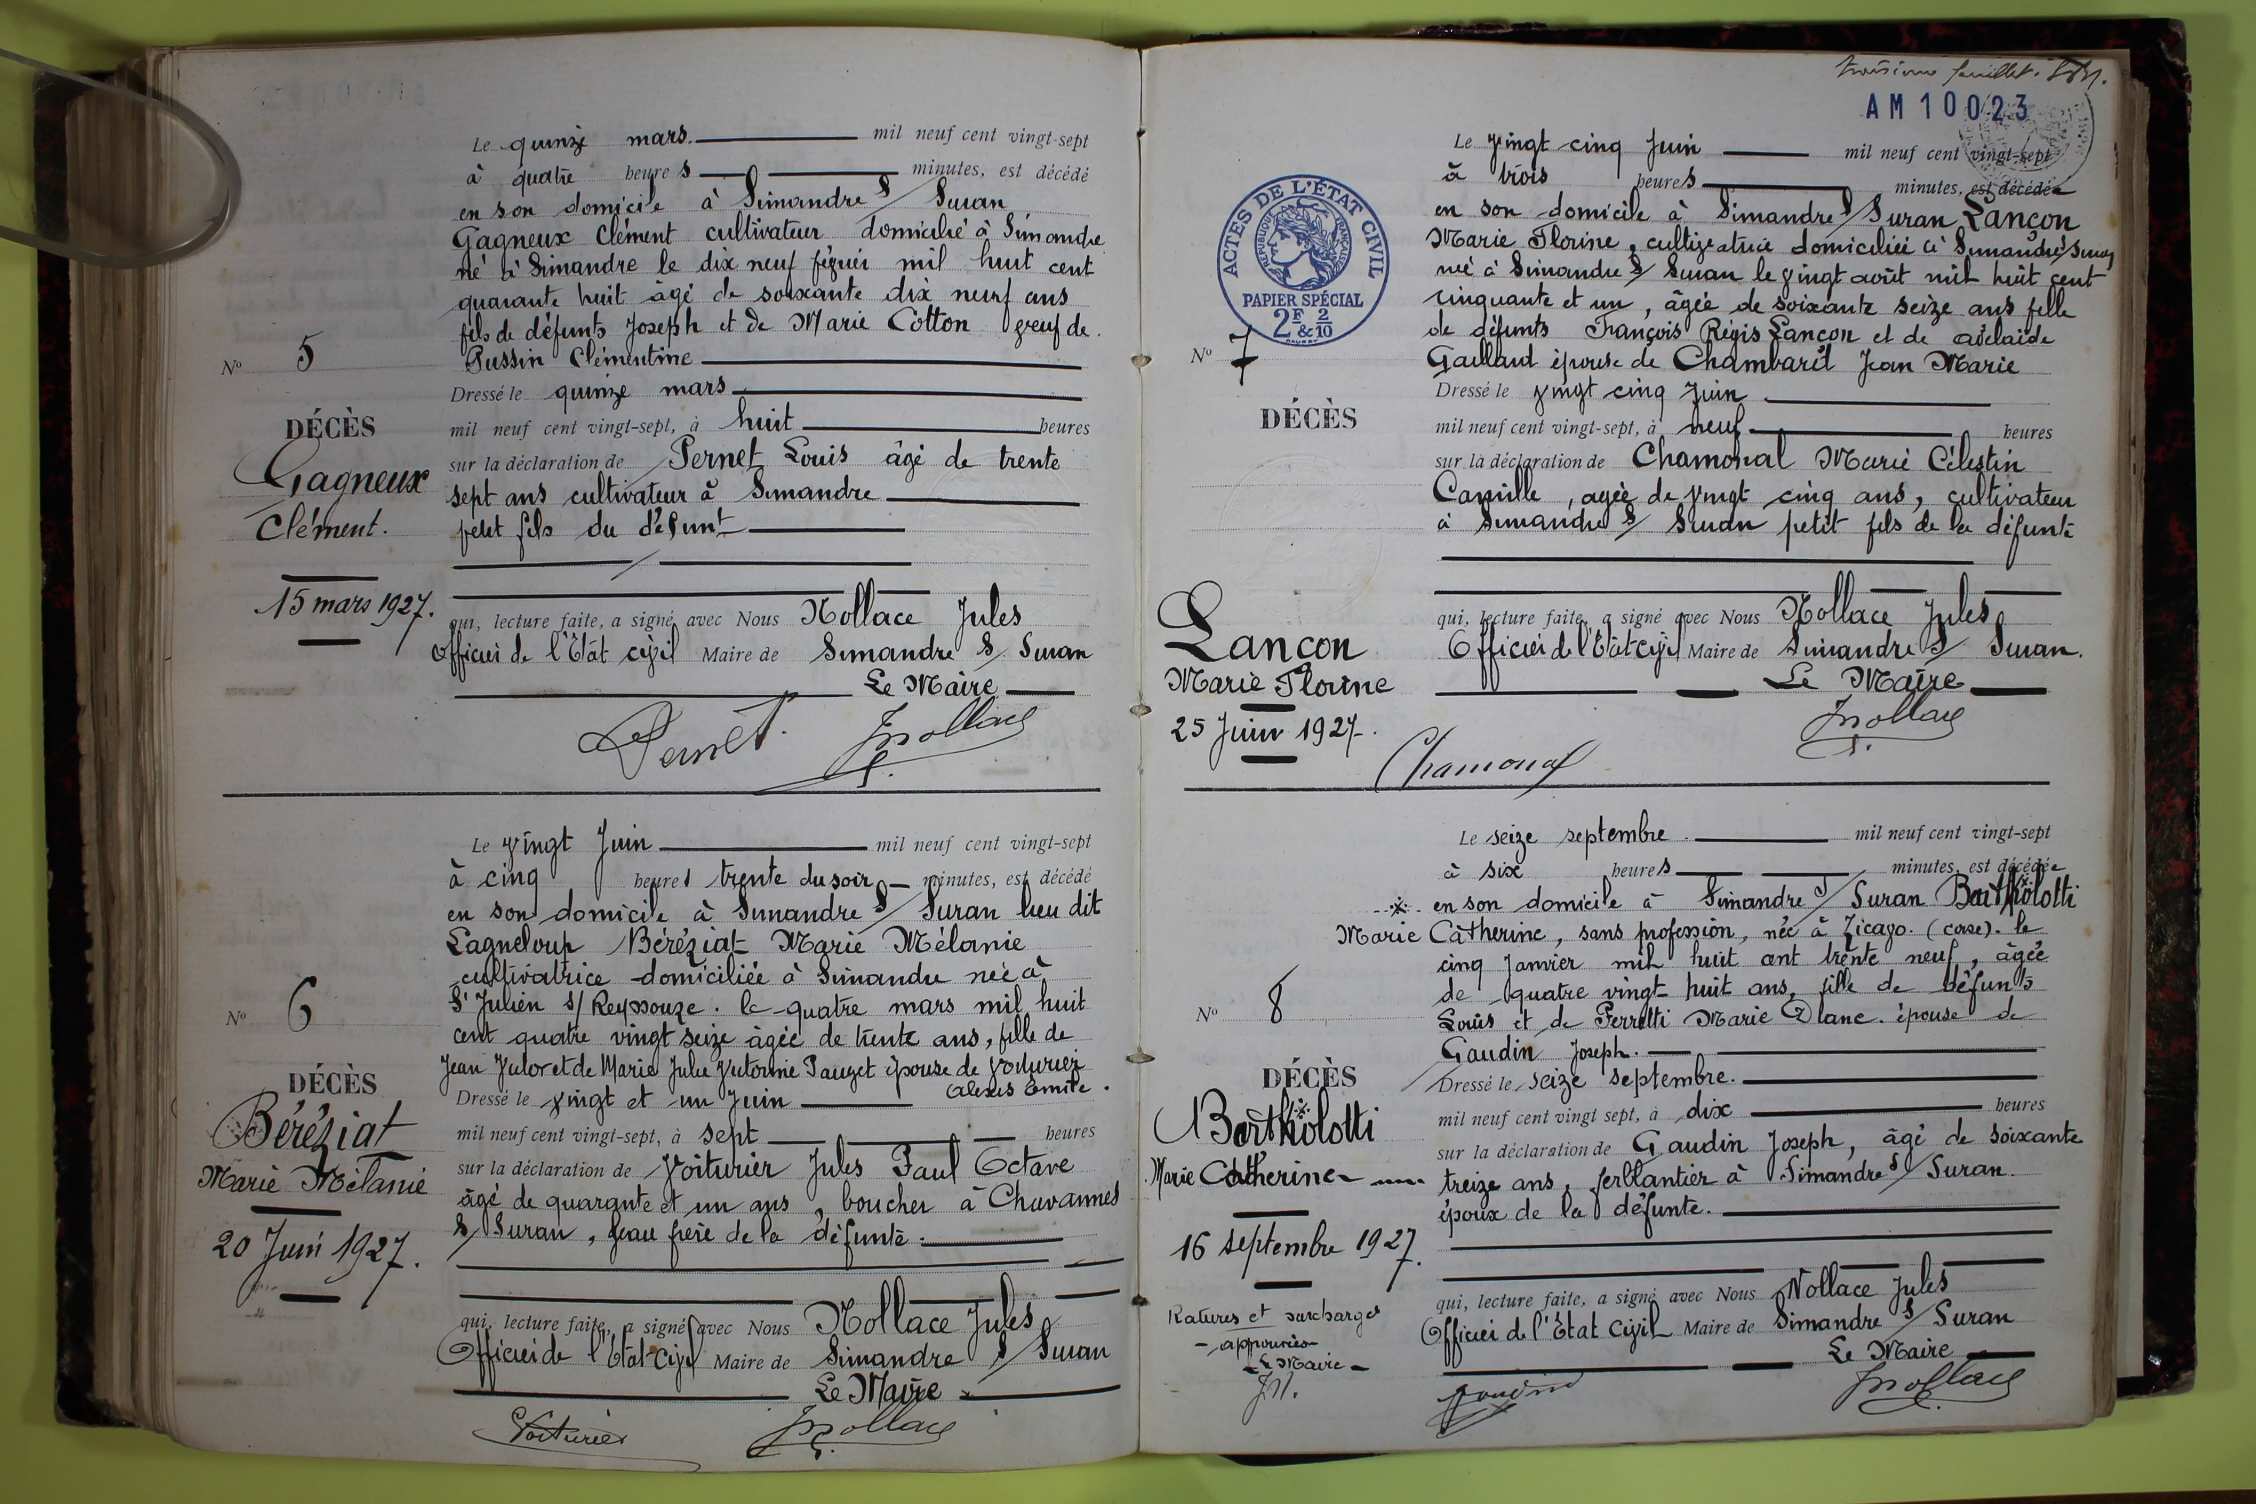 Le quinze mars. mil neuf cent vingt-sept
à quatre heures minutes, est décédé
en son domicile à Simandre S/ Suran
Gagneux Clément cultivateur domicilié à Simandre
né à Simandre le dix neuf février mil huit cent
quarante huit âgé de soixante dix neuf ans
fils de défunts Joseph et de Marie Cotton veuf de
Pussin Clémentine
Nº 5
Dressé le quinze mars
DÉCÈS
mil neuf cent vingt-sept, à huit heures
Gagneux
Clément.
sur la déclaration de Pernet Louis âgé de trente
sept ans cultivateur à Simandre
petit fils du défunt
15 mars 1927.
qui, lecture faite, a signé avec Nous Nollace Jules
Officier de l'Etât civil Maire de Simandre S/ Suran
Le Maire
Pernet JNollace
Le vingt Juin mil neuf cent vingt-sept
à cinq heures trente du soir minutes, est décédé
en son domicile à Simandre S/ Suran lieu dit
Lagneloup Béréziat Marie Mélanie
cultivatrice domiciliée à Simandre née à
St Julien s/ Reyssouze. le quatre mars mil huit
cent quatre vingt seize âgée de trente ans, fille de
Jean Victor et de Marie Julie Victorine Pauget épouse de Voiturier
Alexis Emile.
Nº 6
DÉCÈS
Béréziat
Marie Mélanie
20 Juin 1927.
Dressé le vingt et un Juin
mil neuf cent vingt-sept, à sept heures
sur la déclaration de Voiturier Jules Paul Octave
âgé de quarante et un ans, boucher à Chavannes
S/ Suran, beau frère de la défunte.
qui, lecture faite, a signé avec Nous Nollace Jules
Officier de l'Etât-civil Maire de Simandre S/ Suran
Le Maire
Voiturier JNollace
troisième feuillet.
AM 10023
ACTES DE L'ÉTAT CIVIL
RÉPUBLIQUE FRANÇAISE
PAPIER SPÉCIAL
2F & 2/10
Le vingt cinq Juin mil neuf cent vingt-sept
à trois heures minutes, est décédée
en son domicile à Simandre S/ Suran Lançon
Marie Florine, cultivatrice domiciliée à Simandre S/ Suran
née à Simandre S/ Suran le vingt août mil huit cent
cinquante et un, âgée de soixante seize ans fille
de défunts François Régis Lançon et de adélaide
Gaillard épouse de Chambard Jean Marie
Nº 7
DÉCÈS
Dressé le vingt cinq Juin
mil neuf cent vingt-sept, à neuf heures
sur la déclaration de Chamonal Marie Célestin
Camille, agée de vingt cinq ans, cultivateur
à Simandre S/ Suran petit fils de la défunte
Lançon
Marie Florine
25 Juin 1927.
qui, lecture faite, a signé avec Nous Nollace Jules
Officier de l'Etat civil Maire de Simandre S/ Suran.
Le Maire
JNollace
Chamonal
Le seize septembre. mil neuf cent vingt-sept
à six heures minutes, est décédée
en son domicile à Simandre S/ Suran Bartholotti
Marie Catherine, sans profession, née à Zicavo. (corse). le
cinq Janvier mil huit cent trente neuf, âgée
de quatre vingt huit ans, fille de défunts
Louis et de Perretti Marie Blanc. épouse de
Gaudin Joseph.
Nº 8
DÉCÈS
Bartholotti
Marie Catherine
16 septembre 1927.
Ratures et surcharges
approuvées
Le Maire
JN.
Dressé le seize septembre.
mil neuf cent vingt sept, à dix heures
sur la déclaration de Gaudin Joseph, âgé de soixante
treize ans, ferblantier à Simandre S/ Suran.
époux de la défunte.
qui, lecture faite, a signé avec Nous Nollace Jules
Officier de l'Etat civil Maire de Simandre S/ Suran
Le Maire
Gaudin JNollace